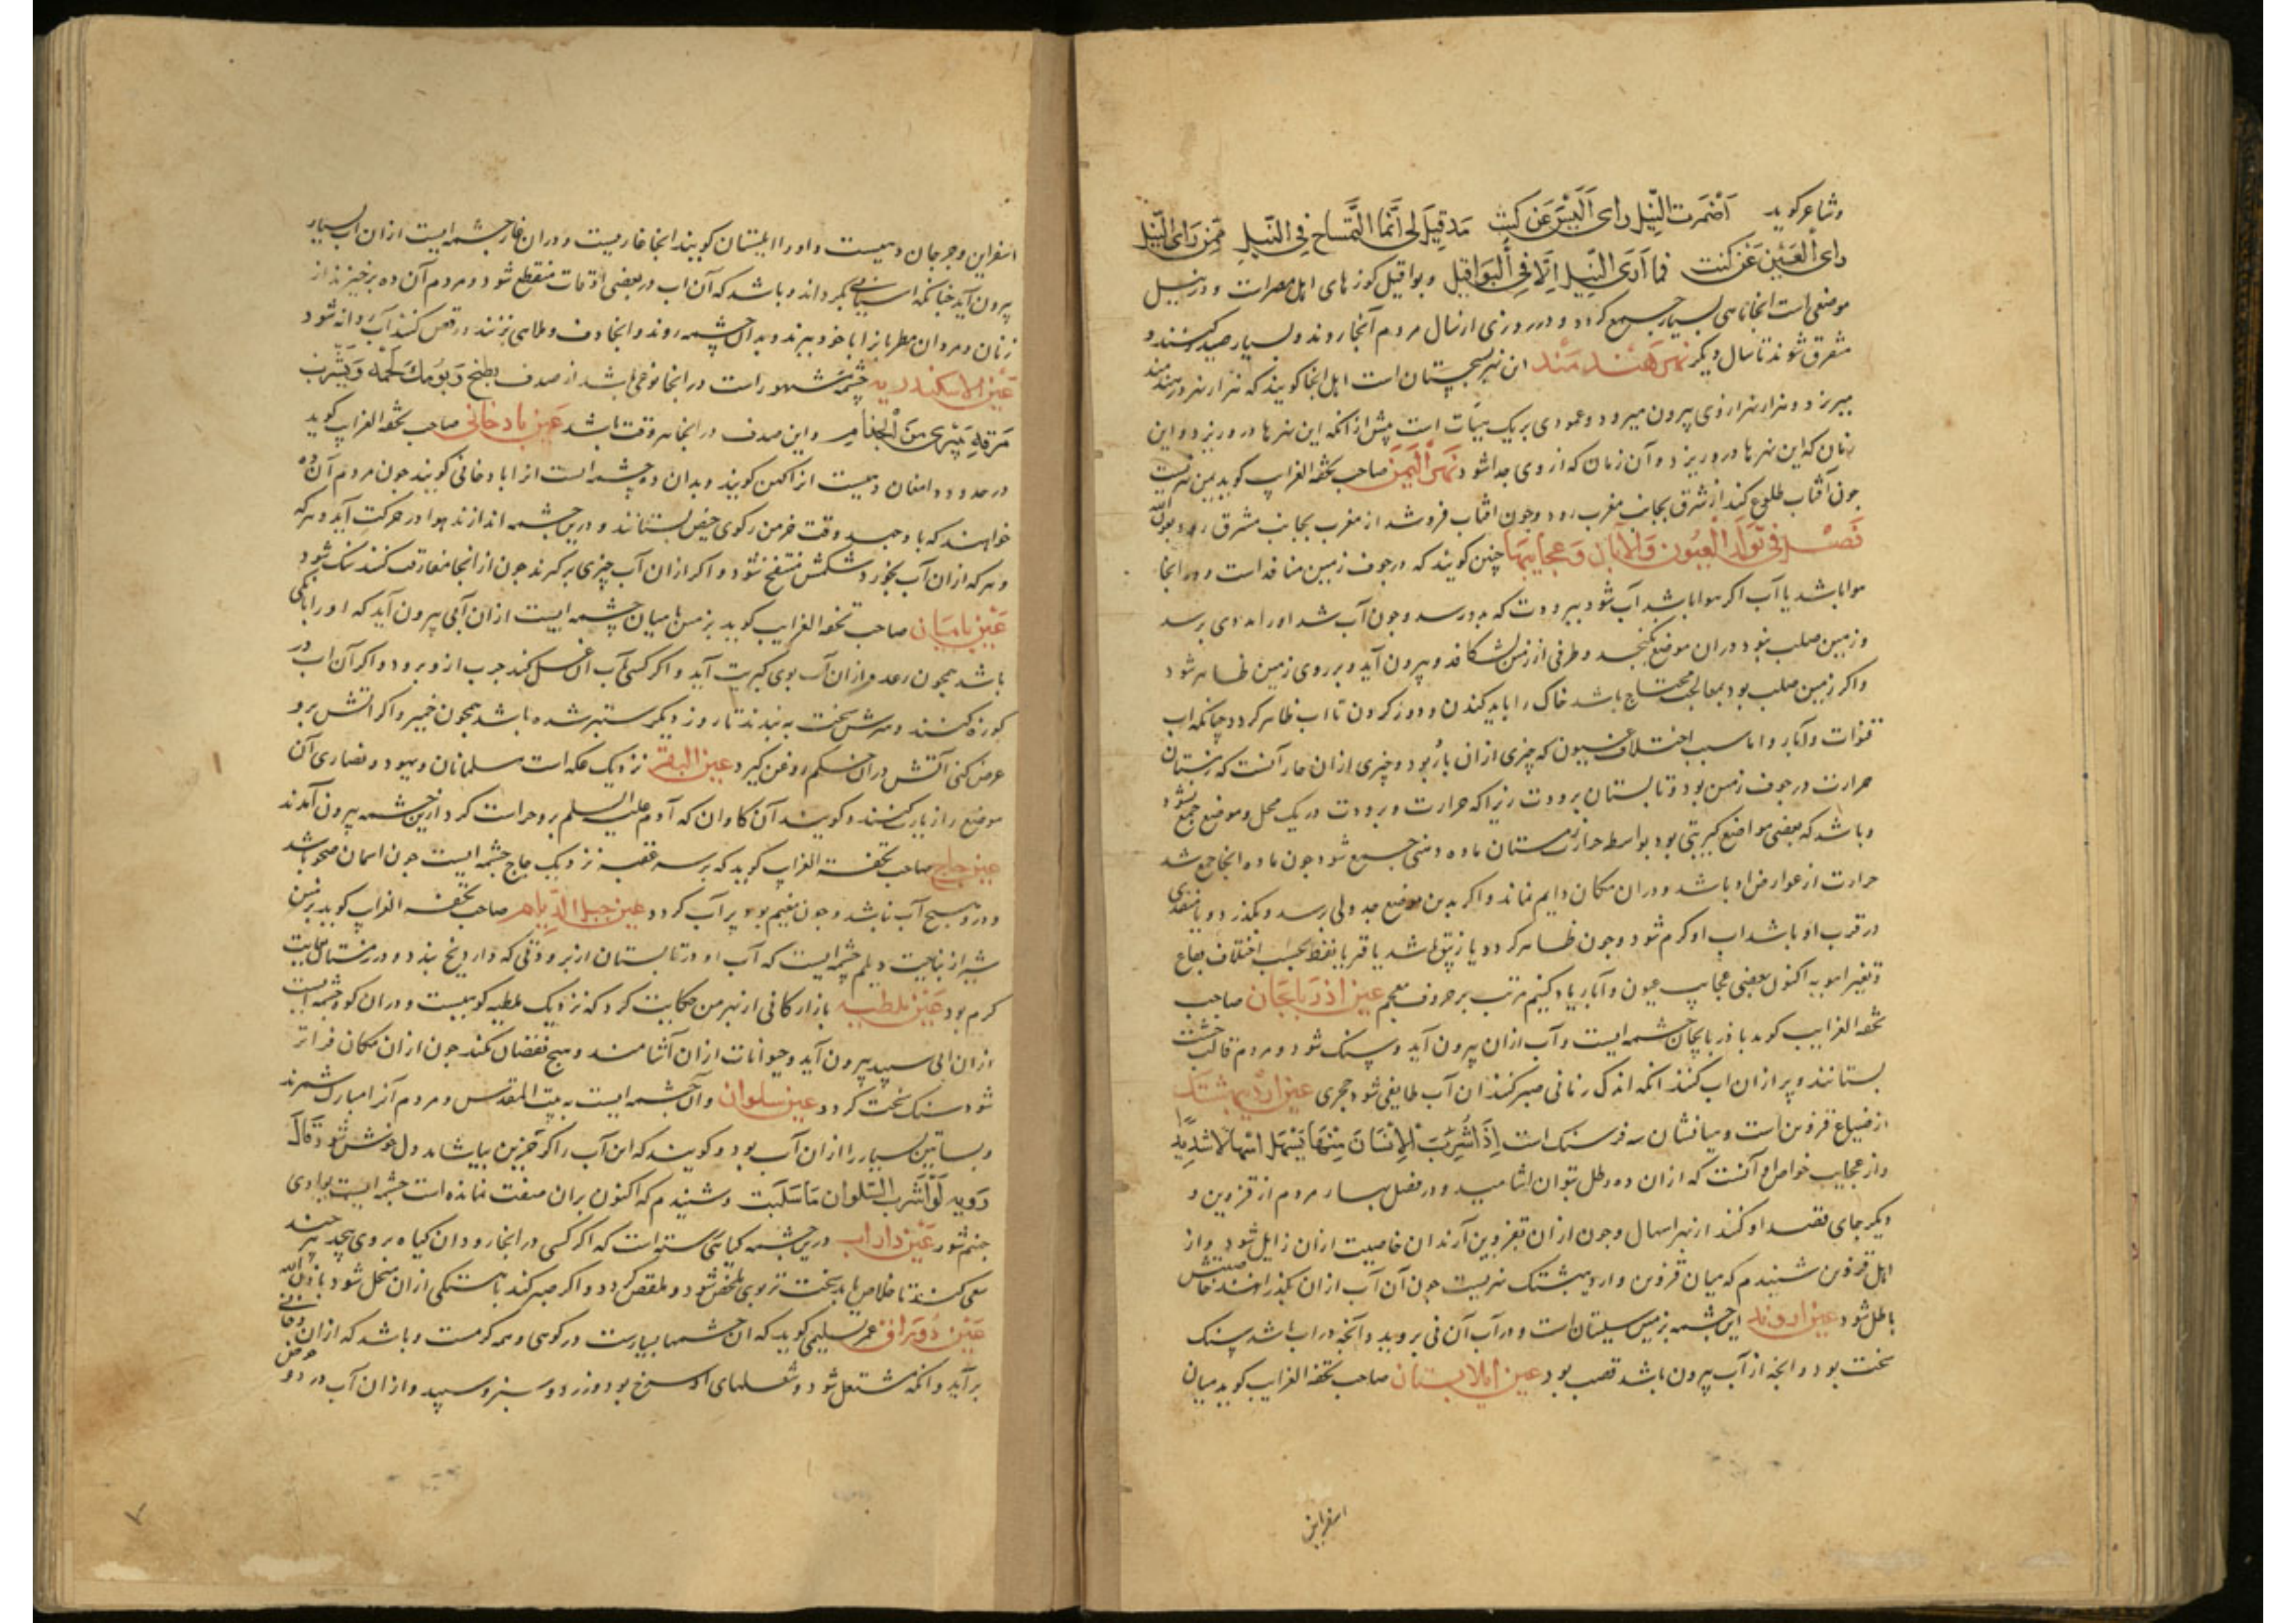 وشاعر کوید اضمرت النیل رای العین عن کنت مذ قیل لی انما التمساح فی النیل فمن رای النیل
رای العین عن کنت فما اری النیل الا فی البواقیل وبواقیل کوزهای اهل مصرات و در نیل
موضعی است انجا ماهی بسیار جمع کردد و در روزی از سال مردم آنجا روند و بسیار صید کنند و
متفرق شوند تا سال دیکر نهر هند مند این نهر بسجستان است اهل انجا کویند که هزار نهر در هندمند
میریزد و هزار نهر از وی بیرون میرود و عمودی بریک هیأت است پیش از آنکه این نهرها درو ریزد و این
زمان که این نهرها درو ریزد و آن زمان که از وی جدا شود نهر الیمن صاحب تحفه الغرایب کوید بیمن نهریست
چون آفتاب طلوع کند از شرق بجانب مغرب رود و چون افتاب فرو شد از مغرب بجانب مشرق رود
فصل فی تولد العیون والآبار وعجایبها چنین کویند که در جوف زمین منافذ است و در انجا
هوا باشد یا آب اکر هوا باشد آب شود ببرودت که بدو رسد و چون آب شد اورا مددی برسد
و زمین صلب نبود در ان موضع نکنجد و طرفی از زمین بشکافد و بیرون آید و بر روی زمین ظاهر شود
و اکر زمین صلب بود بمعالجت محتاج باشد خاک را باید کندن و دور کردن تا اب ظاهر کردد چنانکه اب
قنوات و آبار و اما سبب اختلاف عیون که چیزی ازان بارد بود و چیزی ازان حار آنست که زمستان
حرارت در جوف زمین بود و تابستان برودت زیرا که حرارت و برودت در یک محل و موضع جمع نشود
و باشد که بعضی مواضع کبریتی بود بواسطه حرارت زمستان ماده دهنی جمع شود چون ماده انجا جمع شد
حرارت از عوارض او باشد و دران مکان دایم نماند و اکر بدین موضع جدولی برسد و بکذرد و یا منفذی
در قرب او باشد اب او کرم شود و چون ظاهر کردد یا زیبق باشد یا قیر یا نفط بحسب اختلاف بقاع
و تغیر اهویه اکنون بعضی عجایب عیون و آبار یاد کنیم مرتب بر حروف معجم عین اذربایجان صاحب
تحفه الغرایب کوید باذربایجان چشمه ایست و آب ازان بیرون آید و سنک شود و مردم قالب خشت
بستانند و پر ازان اب کنند انکه اندک زمانی صبر کنند ان آب طایفی شود حجری عین اردیبهشتک
از ضیاع قزوین است و میانشان سه فرسنک است اذا شرب الانسان منها یسهل اسهالا شدیدا
و از عجایب خواص او آنست که ازان ده رطل بتوان اشامید و در فصل بهار مردم از قزوین و
دیکر جای قصد او کنند از بهر اسهال و چون ازان بقزوین آرند ان خاصیت ازان زایل شود و از
اهل قزوین شنیدم که میان قزوین و اردیبهشتک نهریست چون آن آب ازان بکذرانند خاصیتش
باطل شود عین اروند این چشمه بزمین سیستان است و در آب آن نی بروید و آنچه در اب باشد سنک
سخت بود و انچه از آب بیرون باشد قصب بود عین ایلابستان صاحب تحفه الغرایب کوید میان
اسفراین
اسفراین و جرجان دهیست و او را ایلابستان کویند انجا غاریست و در ان غار چشمه ایست ازان اب بسیار
بیرون آید چنانکه اسیابی بکرداند و باشد که آن اب در بعضی اوقات منقطع شود و مردم آن ده برخیزند از
زنان و مردان مطربان را با خود ببرند و بدان چشمه روند و انجا دف و ملاهی بزنند و رقص کنند آب روانه شود
عین الاسکندریه چشمه مشهور است در انجا نوعی باشد از صدف یطبخ ویؤکل لحمه ویشرب
مرقه یبرئ من الجذام و این صدف در انجا هر وقت باشد عین بادخانی صاحب تحفه الغرایب کوید
در حدود دامغان دهیست انرا کهن کویند و بدان ده چشمه است انرا بادخانی کویند چون مردم آن ده
خواهند که باد جهد وقت خرمن رکوی حیض بستانند و در ین چشمه اندازند هوا در حرکت آید و هرکه
و هرکه ازان آب بخورد شکمش منتفخ شود و اکر ازان آب چیزی برکیرند چون از انجا مفارقت کنند سنک شود
عین بامیان صاحب تحفه الغرایب کوید بزمین بامیان چشمه ایست ازان آبی بیرون آید که اورا بانکی
باشد همچون رعد و ازان آب بوی کبریت آید و اکر کسی بآب ان غسل کند جرب ازو برود و اکر آن اب در
کوزه کنند و سرش سخت به بندند تا روز دیکر ستبر شده باشد همچون خمیر و اکر اتش برو
عرض کنی آتش دران خمیر روغن کیرد عین البقر نزدیک عکه است مسلمانان و یهود و نصاری آن
موضع را زیارت کنند و کویند آن کاوان که آدم علیه السلم بر و حراست کرد ازین چشمه بیرون آمدند
عین جاج صاحب تحفة الغرایب کوید که بر سه عقبه نزدیک جاج چشمه ایست چون اسمان صحو باشد
و درو هیچ آب نباشد و چون مغیم بود پر آب کردد عین جبل الدیلم صاحب تحفه الغرایب کوید بزمین
شیراز بناحیت دیلم چشمه ایست که آب او در تابستان از برودتی که دارد یخ بندد و در زمستان بغایت
کرم بود عین ملطیه بازارکانی از بهر من حکایت کرد که نزدیک ملطیه کوهیست و دران کوه چشمه ایست
ازان ابی سپید بیرون آید و حیوانات ازان آشامند و هیچ نقصان نکند چون ازان مکان فراتر
شود سنک سخت کردد عین سلوان و آن چشمه ایست به بیت المقدس و مردم آنرا مبارک شمرند
و بساتین بسیار را ازان آب بود و کویند که این آب را اکر حزین بیاشامد دل خوش شود قال
رویه لو اشرب السلوان ما سلیت و شنیدم که اکنون بران صفت نمانده است چشمه ایست بوادی
جهنم شور عین داراب درین چشمه کیاهی رسته است که اکر کسی در انجا رود ان کیاه بر وی پیچد هر چند
سعی کند تا خلاص یابد سخت تر بوی ملخص شود و ملقص کردد و اکر صبر کند باهستکی ازان منحل شود باذن الله
عین دوراق عمر تسلیمی کوید که ان چشمها بسیارست در کوهی و همه کرمست و باشد که ازان دخانی
برآید و انکه مشتعل شود و شعلهای او سرخ بود و زرد و سبز و سپید و ازان آب در دو حوض